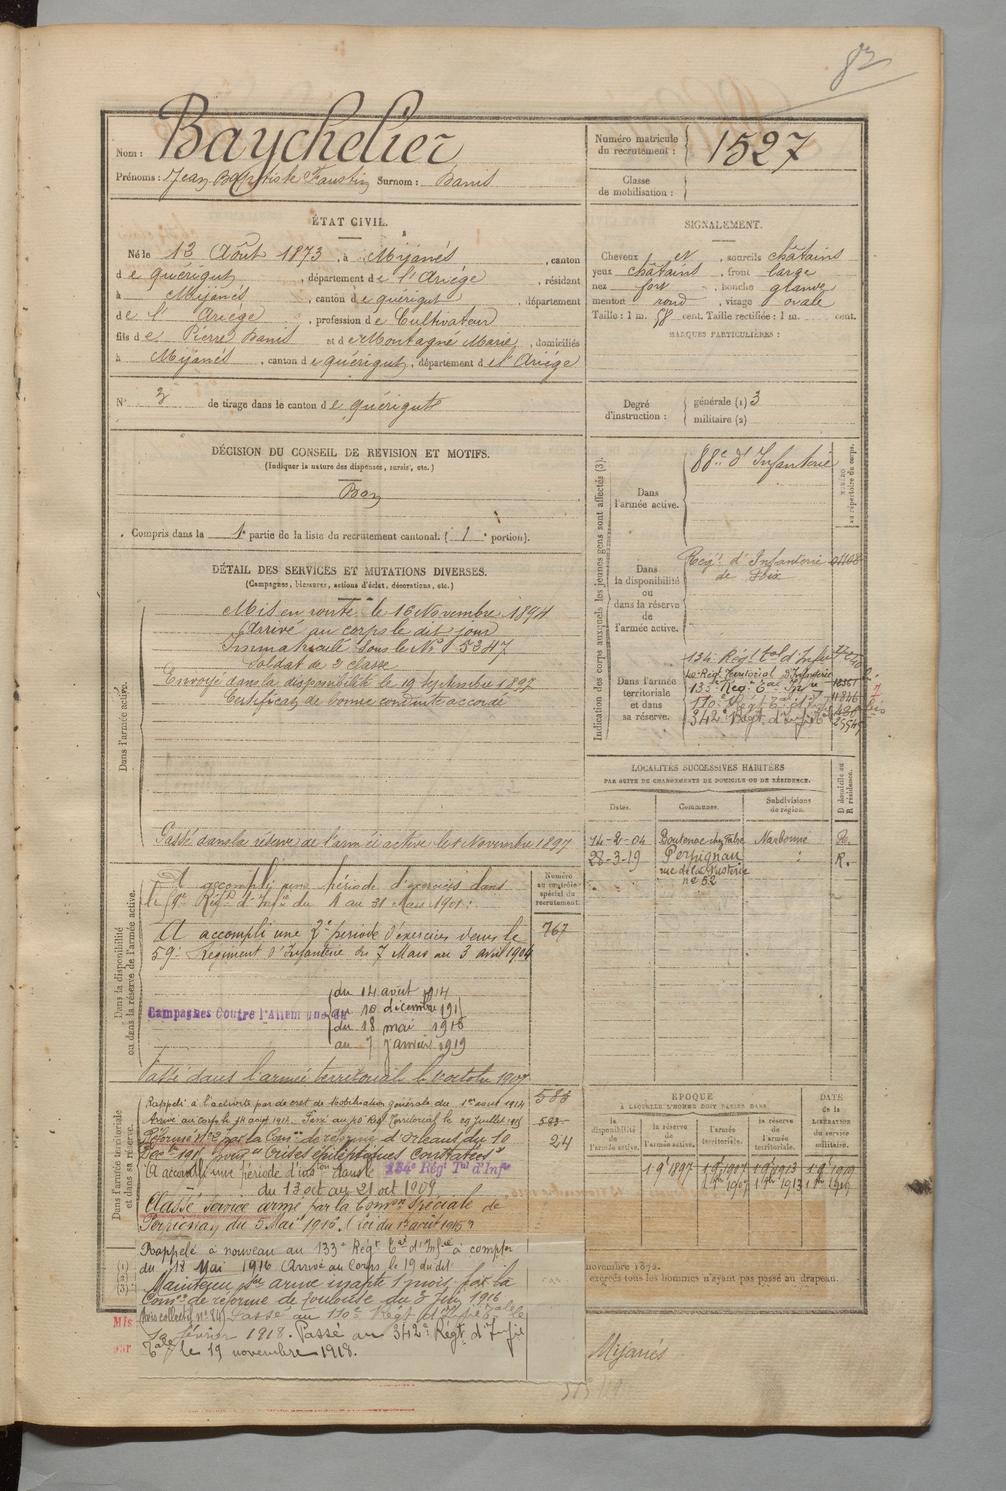 82
Nom : Baychelier
Prénoms : Jean Baptiste Faustin Surnom : Banis
Numéro matricule du recrutement : 1527
Classe de mobilisation :
ÉTAT CIVIL.
Né le 12 Août 1873, à Mijanès, canton
de quérigut, département de l'Ariége, résidant
à Mijanès, canton de quérigut, département
de l'Ariége, profession de Cultivateur
fils de Pierre Banis et de Montagné Marie, domiciliés
à Mijanès, canton de quérigut, département de l'Ariége
N° 3 de tirage dans le canton de quérigut
SIGNALEMENT.
Cheveux et, sourcils châtains
yeux châtains, front large
nez fort, bouche grande
menton rond, visage ovale
Taille : 1 m. 58 cent. Taille rectifiée : 1 m. cent.
MARQUES PARTICULIÈRES :
Degré d'instruction : générale (1) 3
militaire (2)
DÉCISION DU CONSEIL DE RÉVISION ET MOTIFS.
(Indiquer la nature des dispenses, sursis, etc.)
Bon
Compris dans la 1e partie de la liste du recrutement cantonal. ( 1 e portion).
DÉTAIL DES SERVICES ET MUTATIONS DIVERSES.
(Campagnes, blessures, actions d'éclat, décorations, etc.)
Dans l'armée active.
Mis en route le 16 Novembre 1894
Arrivé au corps le dit jour
Immatriculé sous le No 5347
Soldat de 2 classe
Envoyé dans la disponibilité le 19 septembre 1897
Certificat de bonne conduite accordé
Passé dans la réserve de l'armée active le 1 Novembre 1897
Indication des corps auxquels les jeunes gens sont affectés (3).
NUMÉRO au répertoire du corps.
Dans l'armée active.
88e d'Infanterie
Dans la disponibilité ou dans la réserve de l'armée active.
Régt d'Infanterie
de Foix
01108
Dans l'armée territoriale et dans sa réserve.
134 Régt tal d'Infie
40 Régt Territorial d'Infanterie
133e Régt tal Infie
110e Régt tal d'Infie
342e Régt d'Infie
LOCALITÉS SUCCESSIVES HABITÉES
PAR SUITE DE CHANGEMENTS DE DOMICILE OU DE RÉSIDENCE.
Dates. Communes. Subdivisions de région. D domicile ou R résidence.
14-8-04 Boutenac Narbonne R.
28-3-19 Perpignan " R.
no 52
Dans la disponibilité ou dans la réserve de l'armée active.
Numéro au contrôle spécial du recrutement.
A accompli une période d'exercices dans
le Régt d'Infie du 4 au 31 Mars 1901
A accompli une 2e période d'exercices dans le
59e Régiment d'Infanterie du 7 Mars au 3 avril 1904
767
Campagnes Contre l'Allemagne du
du 14 août 1914
au 10 décembre 191
du 18 mai 1916
au 7 janvier 1919
Passé dans l'armée territoriale le 1 octobre 1907
Dans l'armée territoriale et dans sa réserve.
Rappelé à l'activité par décret de Mobilisation générale du 1er août 1914
Arrivé au Corps le 14 août 1914. Passé au 40 Régt Territorial le 29 juillet 1915
Réformé no 2 par la Comon de réforme d'Orléans du 10
Dec. 1915 pour "Crises épileptiques constatées"
A accompli une période d'instion dans le 134e Régt Tal d'Infie
du 13 oct au 21 oct 1909
Classé service armé par la Comon Spéciale de
Perpignan du 5 Mai 1916. (Loi du 17 août 1915)
583
583
24
Rappelé à nouveau au 133e Régt tal d'Infie à compter
du 18 Mai 1916 Arrivé au Corps le 19 du dit
Maintenu ser armé inapte 1 mois par la
Comon de réforme de Toulouse du 3 1916
(Avis collectif no 84) Passé au 110e Régt d'Infie territoriale
février 1918. Passé au 342e Régt d'Infie
tale le 19 novembre 1918.
ÉPOQUE
À LAQUELLE L'HOMME DOIT PASSER DANS
la disponibilité de l'armée active. la réserve de l'armée active. l'armée territoriale. la réserve de l'armée territoriale.
DATE de la LIBÉRATION du service militaire.
1 9 1897 1 9 1907 1 9 1913 1 9 1919
novembre 1872.
exercés tous les hommes n'ayant pas passé au drapeau.
(1)
(2)
(3)
Mis
par
Mijanès